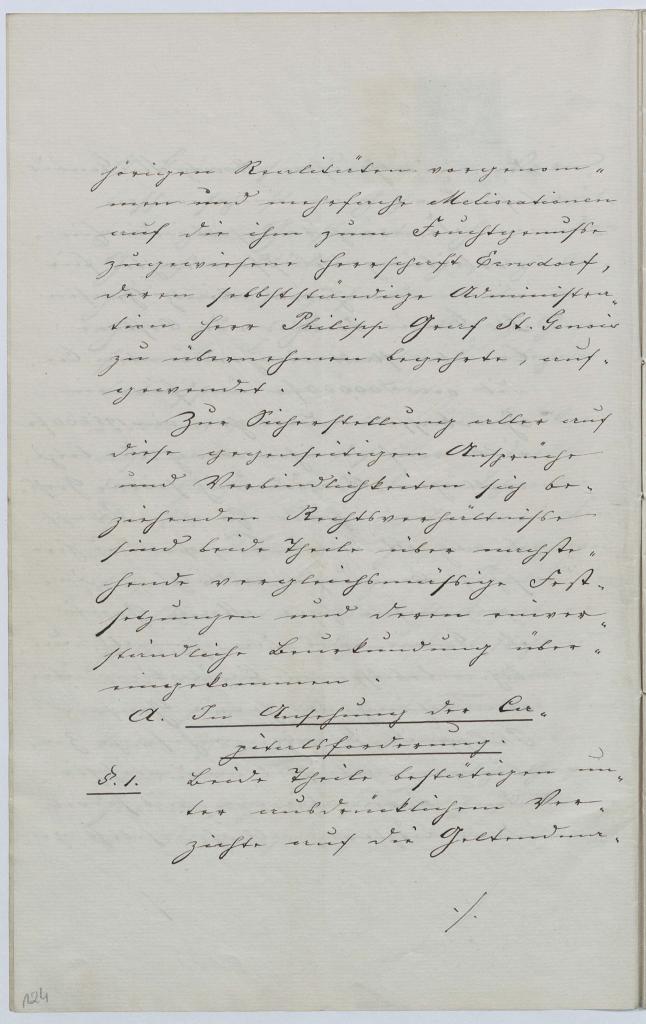 hörigen Realitäten vorgenom„
men und mehrfache Meliorationen
auf die ihm zum Fruchtgenusse
zugewiesene Herrschaft Ernsdorf,
deren selbstständige Administra„
tion Herr Philipp Graf St. Genois
zu übernehmen begehrte, auf„
gewendet.
Zur Sicherstellung aller auf
diese gegenseitigen Ansprüche
und Verbindlichkeiten sich be„
ziehenden Rechtsverhältnisse
sind beide Theile über nachste„
hende vergleichsmässige Fest„
setzungen und deren einver„
ständliche Beurkundung über„
eingekommen.
A. In Ansehung der Ca„
pitalsforderung.
§. 1. Beide Theile bestätigen un„
ter ausdrücklichem Ver„
zichte auf die Geltendma„
./.
124